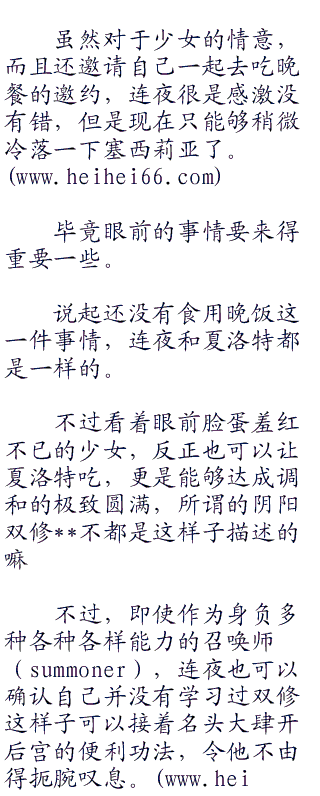 虽然对于少女的情意，
而且还邀请自己一起去吃晚
餐的邀约，连夜很是感激没
有错，但是现在只能够稍微
冷落一下塞西莉亚了。
(www.heihei66.com)
毕竟眼前的事情要来得
重要一些。
说起还没有食用晚饭这
一件事情，连夜和夏洛特都
是一样的。
不过看着眼前脸蛋羞红
不已的少女，反正也可以让
夏洛特吃，更是能够达成调
和的极致圆满，所谓的阴阳
双修**不都是这样子描述的
嘛
不过，即使作为身负多
种各种各样能力的召唤师
（summoner），连夜也可以
确认自己并没有学习过双修
这样子可以接着名头大肆开
后宫的便利功法，令他不由
得扼腕叹息。(www.hei